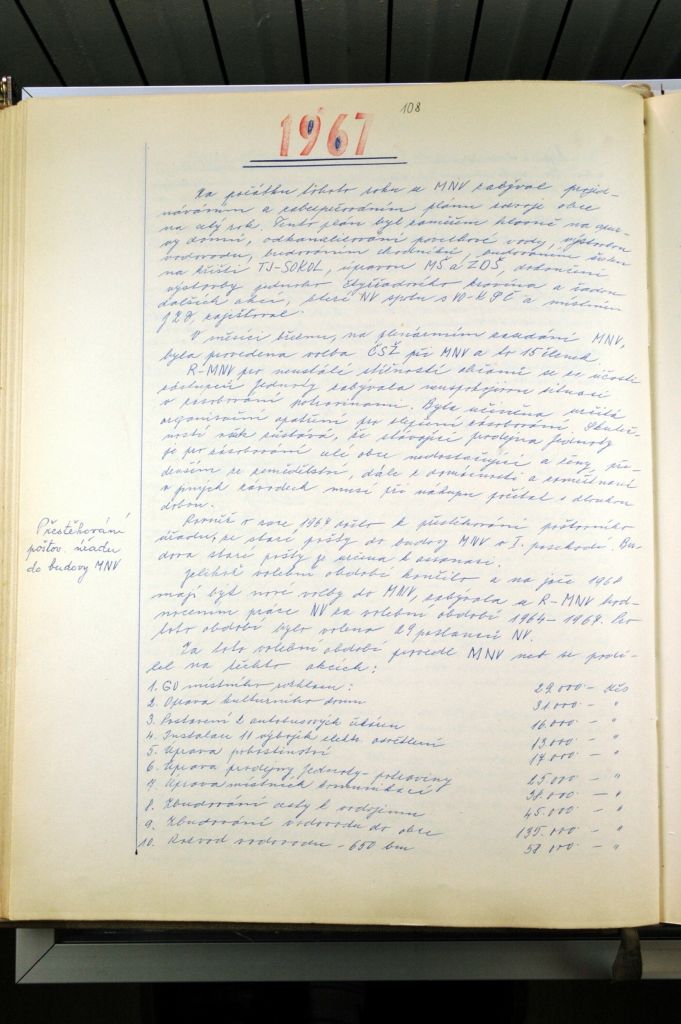 108
1967
Na počátku tohoto roku se MNV zabýval projed-
náváním a zabezpečováním plánu rozvoje obce
na celý rok. Tento plán byl zaměřen hlavně na opra-
vy domů, odkanalisování povrchové vody, výstavbu
vodovodu, budováním chodníků, budováním šaten
na hřišti TJ-SOKOL, úpravou MŠ a ZDŠ, dokončení
výstavby jednoho čtyřřadového kravína a řadou
dalších akcí, které NV spolu s VO-KSČ a místním
JZD, zajišťoval.
V měsíci březnu, na plenárním zasedání MNV,
byla provedena volba ČSŽ při MNV a to 15 členek.
R-MNV pro neustálé stížnosti občanů se za účasti
zástupců Jednoty zabývala neuspokojivou situací
v zásobování potravinami. Byla učiněna určitá
organisační opatření pro zlepšení zásobování. Skuteč-
ností však zůstává, že stávající prodejna Jednoty
je pro zásobování celé obce nedostačující a ženy, pře-
devším ze zemědělství, dále z domácnosti a zaměstnané
v jiných závodech musí při nákupu počítat s dlouhou
dobou.
Rovněž v roce 1967 došlo k přestěhování poštovního
úřadu, ze staré pošty do budovy MNV v I. poschodí. Bu-
dova staré pošty je určena k asanaci.
Přestěhování
poštov. úřadu
do budovy MNV
Jelikož volební období končilo a na jaře 1968
mají být nové volby do MNV, zabývala se R-MNV hod-
nocením práce NV za volební období 1964-1967. Pro
toto období bylo voleno 29 poslanců NV.
Za toto volební období provedl MNV neb se podí-
lel na těchto akcích:
1. GO místního rozhlasu: 29.000 - Kčs
2. Oprava kulturního domu 31.000 - "
3. Postavení 2 autobusových čekáren 16.000 - "
4. Instalace 11 výbojek elektr. osvětlení 13.000 - "
5. Úprava pohostinství 17.000 - "
6. Úprava prodejny Jednoty - potraviny 25.000 - "
7. Úprava místních komunikací 38.000 - "
8. Zbudování cesty k vodojemu 45.000 - "
9. Zbudování vodovodu do obce 135.000 - "
10. Rozvod vodovodu - 650 bm 58.000 - "